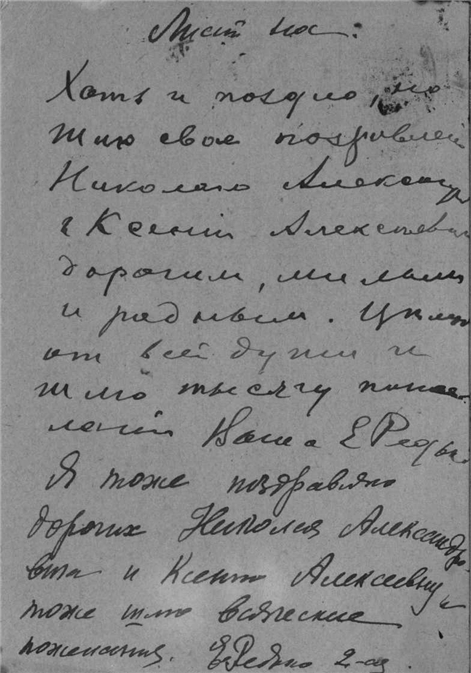 Хоть и поздно, но
шлю свое поздравлен
Николаю Алексан
и Ксении Алексеевн
дорогим, милым
и родным. Целую
от всей души и
шлю тысячу поже
ланий Ваша Е Редь
Я тоже поздравляю
дорогих Николая Александро-
вича и Ксению Алексеевну и
тоже шлю всяческие
пожелания. Е Редько 2-ая